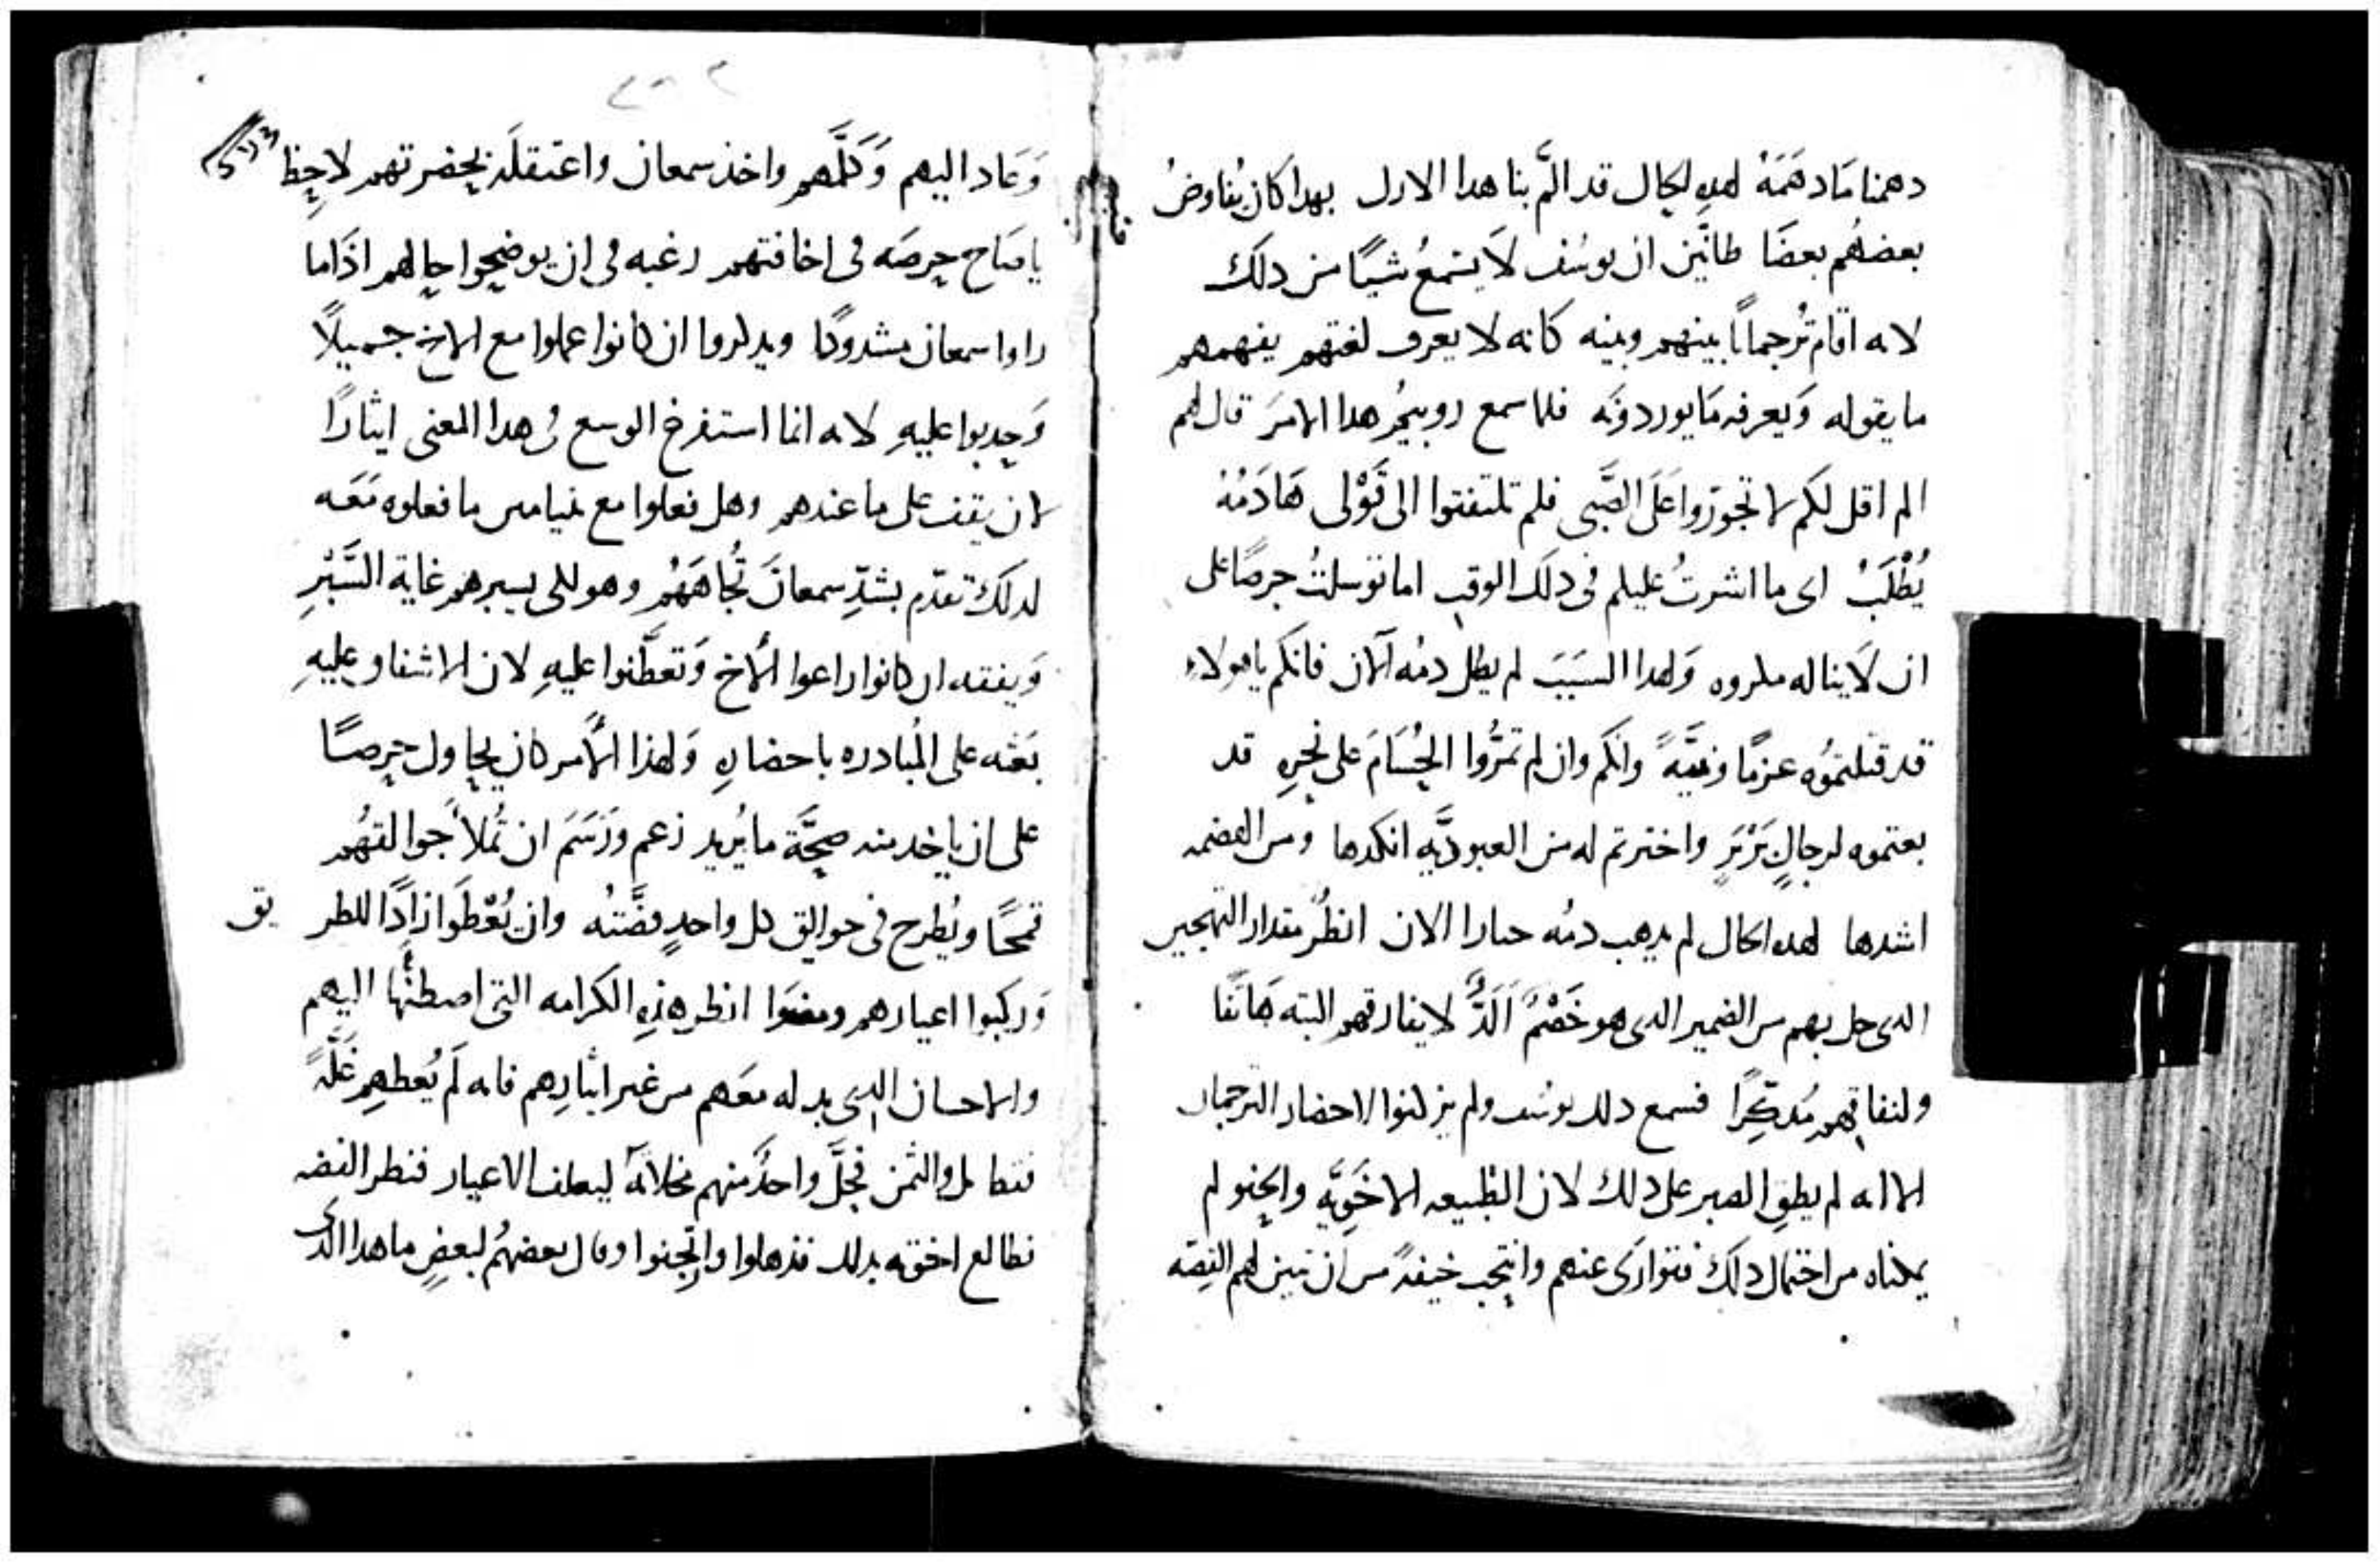 دهمنا مَا دهَمَهُ لهدِه لحِال قد المَّ بنا هدا الازل بهدا كان يُفاوضُ
بعضهُم بعضًا ظانّين ان يوسُف لَا يسَمعُ شيًا من دلك
لانه اقام تُرجمانًا بينهم وبينه كانه لا يعرف لغتهم يفهمهم
ما يقوله وَيعرفه مَا يوردونَه فلما سمع روبيحُر هدا الامرَ قال لهم
الم اقل لكم لا تجورَوا عَلَى الصَّبى فلم تلتفتوا الى قَوْلى هَا دَمُهُ
يُطْلَبْ اى ما اشرتُ عليكم فى دلك الوقت اما توسلتُ حرصًا على
ان لَا يناله مكروه وَلهدا السَبَبَ لم يطل دمُه الآن فانكم يا هولاءِ
قد قتلتمُوه عزمًا ونيَّهً وانكم وان لم تمرُّوا الحُسَامَ على نحرِهِ قد
بعتموه لرجالٍ بَرْبَرٍ واخترتم له من العبوديَّه انكدها ومن
اشدها لهده الحال لم يدهب دمُه جبارا الان انظُر مقدار التهجير
الدى حل بهم من الضمير الدى هو خَصْمٌ اَلَدُّ لا يفارقهم البته هَاتفًا
ولنفاقهم مُدكِرًا فسمع دلك يوسُف ولم يركنوا لاحضار الترجمان
الا انه لم يطق الصبر على دلك لان الطبيعه الاخَوِيَّه والحنو لم
يمكناه من احتمال دلك فتوارَى عنهم وانتحِب خيفةً من ان تبين لهم القِصّه
وَعَاد اليهم وَكَلَّمَهم واخذ سمعان واعتقلَه بحضرتهم لاحِظ
يا صَاح حِرصَه فى اخافتهم رغبه فى ان يوضحِوا حالهم اذَا ما
راوا سمعان مشدودًا ويدكروا ان كانوا عملوا مع الاخ جميلًا
وَحِدبوا عليهِ لانه انما استفرغ الوسع فى هدا المعنى ايثارًا
لان يقف على ما عندهم وهل فعلوا مع بنيامين ما فعلوه مَعَه
لدلك تقدّم بشدِّ سمعانَ تُجاهَهُمْ وهو لكى يسبرهم غاية السَّبْرِ
وَيفتقد ان كانوا راعوا الأخ وَتعطَّفوا عليهِ لان الاشفاق عليهِ
بَعَثه على المُبادره باحضارهِ وَلهذا الأمر كان يحاول حِرصًا
على ان ياخد منه صحَّة ما يُريد زعم ورَسَمَ ان تُملأَ جوالقهُم
قمحًا ويُطرح فى جوالق كل واحدٍ فضَّتُه وان يُعْطَوا زادًا للطريق
وَركبوا اعيارهم ومضَوا انظر هذِهِ الكرامه التى اصطنعها اليهم
والاحسان الدى بدله معَهم من غير ايثارِهم فانه لَم يُعطِهِم غَلَّةً
فقط بل والثمن فحَلَّ واحدٌ منهم مخلاتَهُ ليعلف الاعيار فنظر الفضه
فطالع اخوته بدلك فذهلوا وارتجنوا وقال بعضهُم لبعضٍ ما هدا الدى